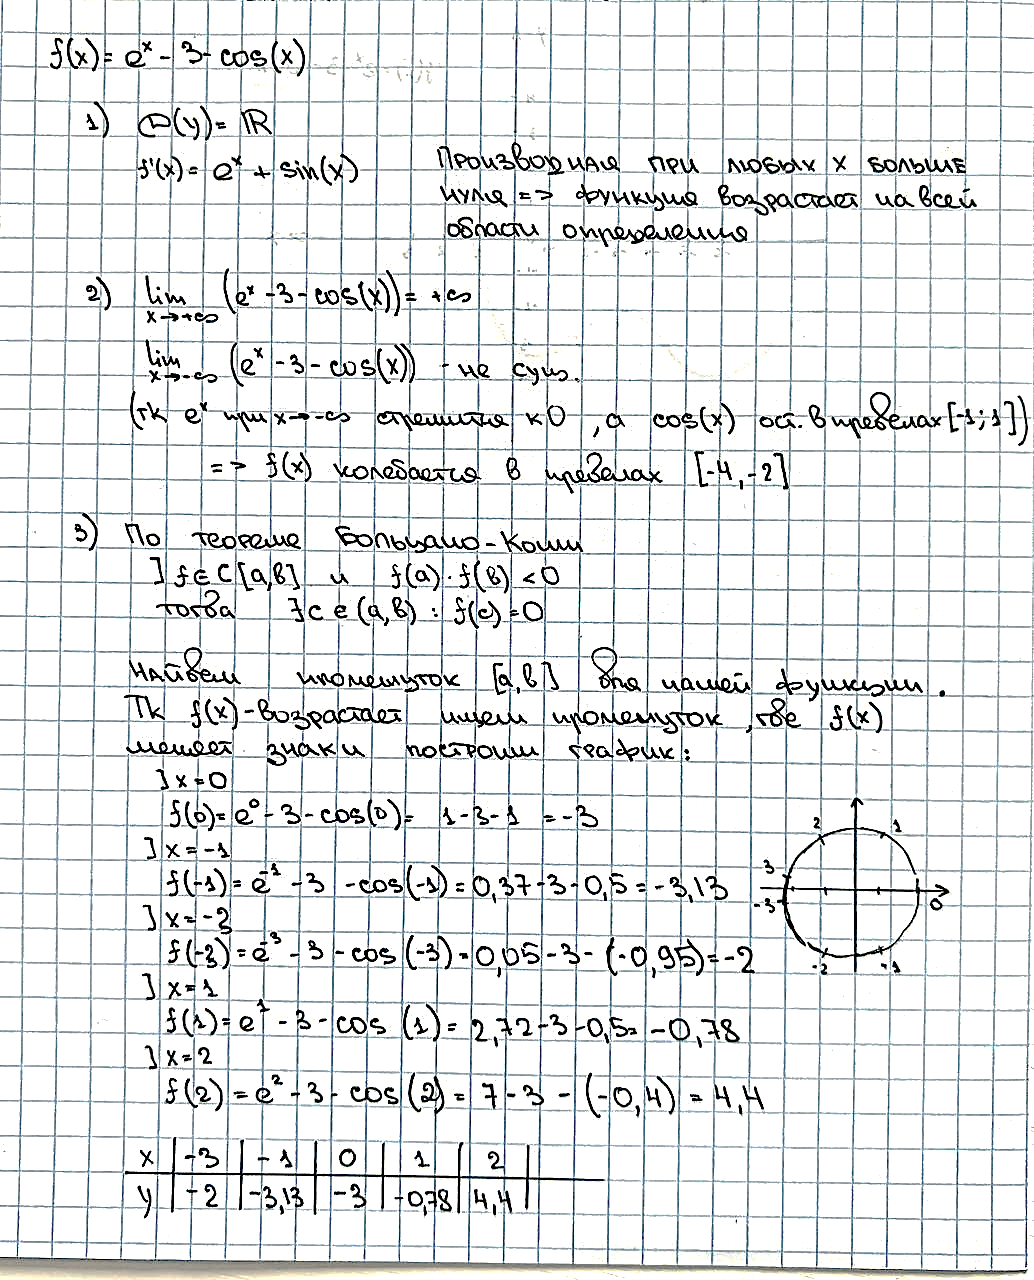 f(x) = eˣ - 3 - cos(x)
1) D(y) = ℝ
f'(x) = eˣ + sin(x)
Производная при любых x больше
нуля => функция возрастает на всей
области определения
2) lim x→+∞ (eˣ - 3 - cos(x)) = +∞
lim x→-∞ (eˣ - 3 - cos(x)) - не сущ.
(тк eˣ при x→-∞ стремится к 0, а cos(x) ост. в пределах [-1;1])
=> f(x) колебается в пределах [-4,-2]
3) По теореме Больцано-Коши
] f∈C[a,b] и f(a)·f(b) < 0
тогда ∃c∈(a,b) : f(c) = 0
Найдем промежуток [a,b] для нашей функции.
Тк f(x)-возрастает ищем промежуток, где f(x)
меняет знак и построим график:
] x = 0
f(0) = e⁰ - 3 - cos(0) = 1 - 3 - 1 = -3
] x = -1
f(-1) = e⁻¹ - 3 - cos(-1) = 0,37 - 3 - 0,5 = -3,13
] x = -3
f(-3) = e⁻³ - 3 - cos(-3) = 0,05 - 3 - (-0,95) = -2
] x = 1
f(1) = e¹ - 3 - cos(1) = 2,72 - 3 - 0,5 = -0,78
] x = 2
f(2) = e² - 3 - cos(2) = 7 - 3 - (-0,4) = 4,4
2 1
3
-3 0
-2 -1
x | -3 | -1 | 0 | 1 | 2 |
y | -2 | -3,13 | -3 | -0,78 | 4,4 |